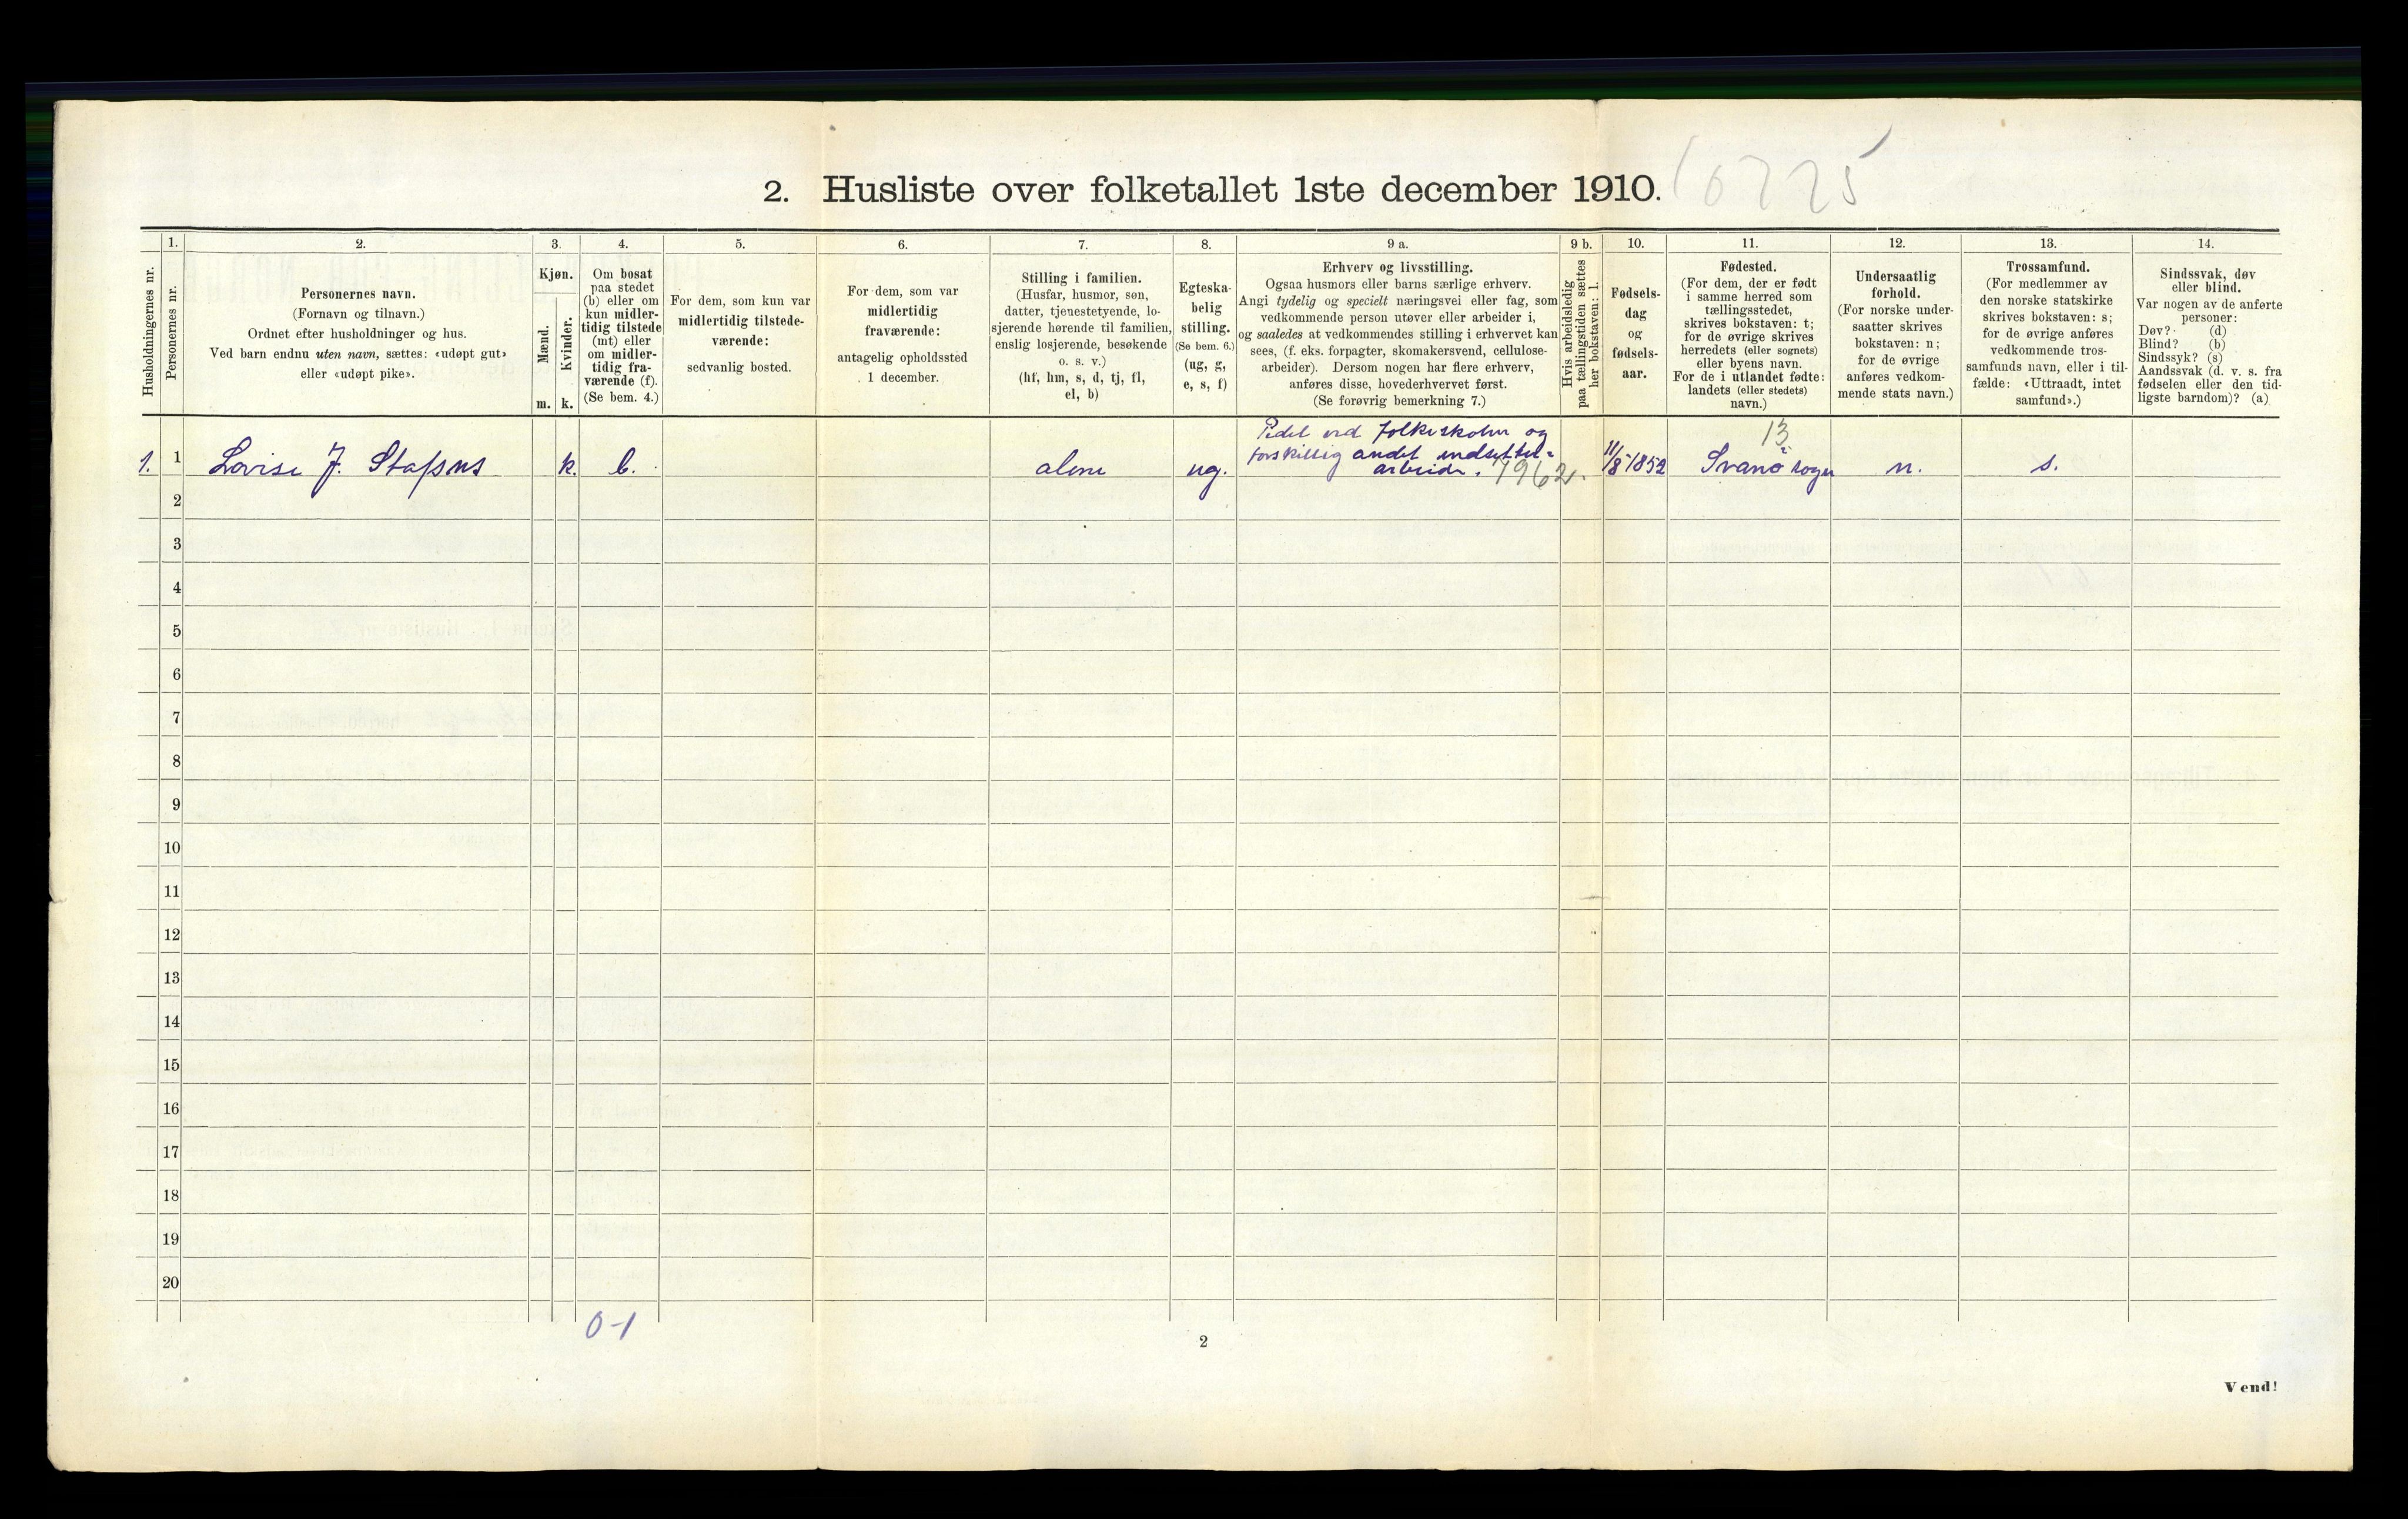 2. Husliste over folketallet 1ste december 1910.
Husholdningernes nr.
1.
Personernes nr.
2.
Personernes navn.
(Fornavn og tilnavn.)
Ordnet efter husholdninger og hus.
Ved barn endnu uten navn, sættes: «udøpt gut»
eller «udøpt pike».
3.
Kjøn.
Mænd.
m.
Kvinder.
k.
4.
Om bosat
paa stedet
(b) eller om
kun midler-
tidig tilstede
(mt) eller
om midler-
tidig fra-
værende (f).
(Se bem. 4.)
5.
For dem, som kun var
midlertidig tilstede-
værende:
sedvanlig bosted.
6.
For dem, som var
midlertidig
fraværende:
antagelig opholdssted
1 december.
7.
Stilling i familien.
(Husfar, husmor, søn,
datter, tjenestetyende, lo-
sjerende hørende til familien,
enslig losjerende, besøkende
o. s. v.)
(hf, hm, s, d, tj, fl,
el, b)
8.
Egteska-
belig
stilling.
(Se bem. 6.)
(ug, g,
e, s, f)
9 a.
Erhverv og livsstilling.
Ogsaa husmors eller barns særlige erhverv.
Angi tydelig og specielt næringsvei eller fag, som
vedkommende person utøver eller arbeider i,
og saaledes at vedkommendes stilling i erhvervet kan
sees, (f. eks. forpagter, skomakersvend, cellulose-
arbeider). Dersom nogen har flere erhverv,
anføres disse, hovederhvervet først.
(Se forøvrig bemerkning 7.)
9 b.
Hvis arbeidsledig
paa tællingstiden sættes
her bokstaven: l.
10.
Fødsels-
dag
og
fødsels-
aar.
11.
Fødested.
(For dem, der er født
i samme herred som
tællingsstedet,
skrives bokstaven: t;
for de øvrige skrives
herredets (eller sognets)
eller byens navn.
For de i utlandet fødte:
landets (eller stedets)
navn.)
12.
Undersaatlig
forhold.
(For norske under-
saatter skrives
bokstaven: n;
for de øvrige
anføres vedkom-
mende stats navn.)
13.
Trossamfund.
(For medlemmer av
den norske statskirke
skrives bokstaven: s;
for de øvrige anføres
vedkommende tros-
samfunds navn, eller i til-
fælde: «Uttraadt, intet
samfund».)
14.
Sindssvak, døv
eller blind.
Var nogen av de anførte
personer:
Døv? (d)
Blind? (b)
Sindssyk? (s)
Aandssvak (d. v. s. fra
fødselen eller den tid-
ligste barndom)? (a)
13
folkeskolen og
forskillig andet
arbeide. 7962.
1. 1 Lovise J. k. b. alene ug. 11/8 1852 Svanø sogn n. s.
2
3
4
5
6
7
8
9
10
11
12
13
14
15
16
17
18
19
20
0-1
2
Vend!